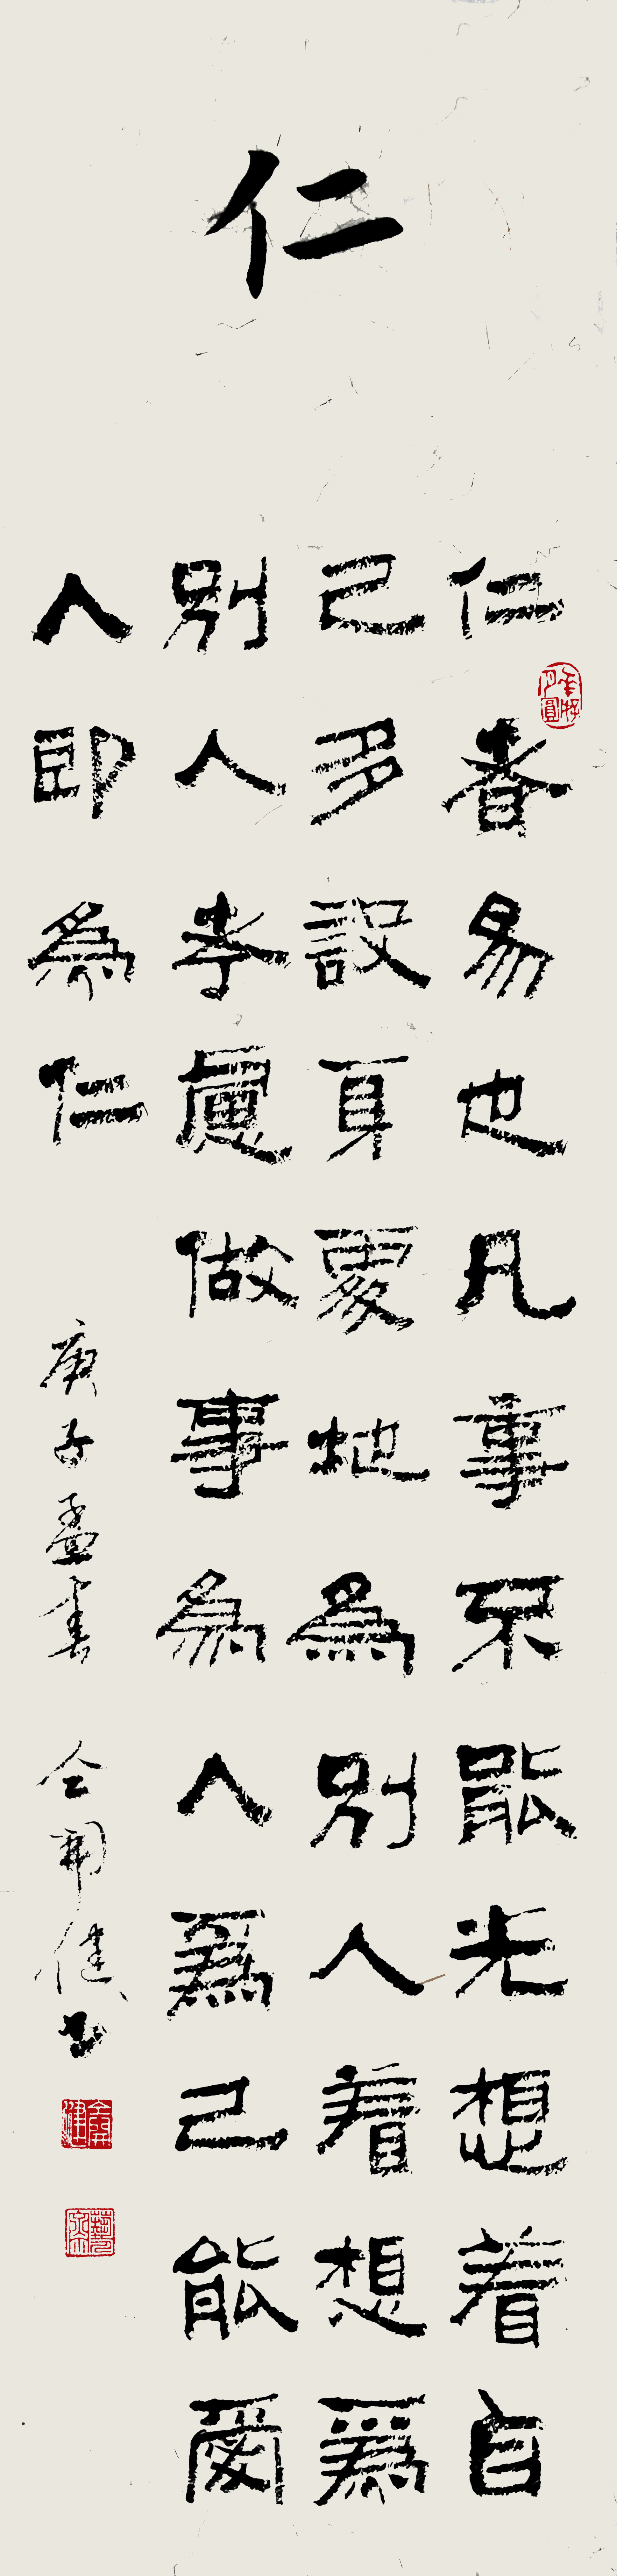 仁
仁者易也凡事不能光想着自
己多設身處地為別人着想爲
別人考慮做事為人爲己能愛
人即為仁
庚子孟春 仝開健书